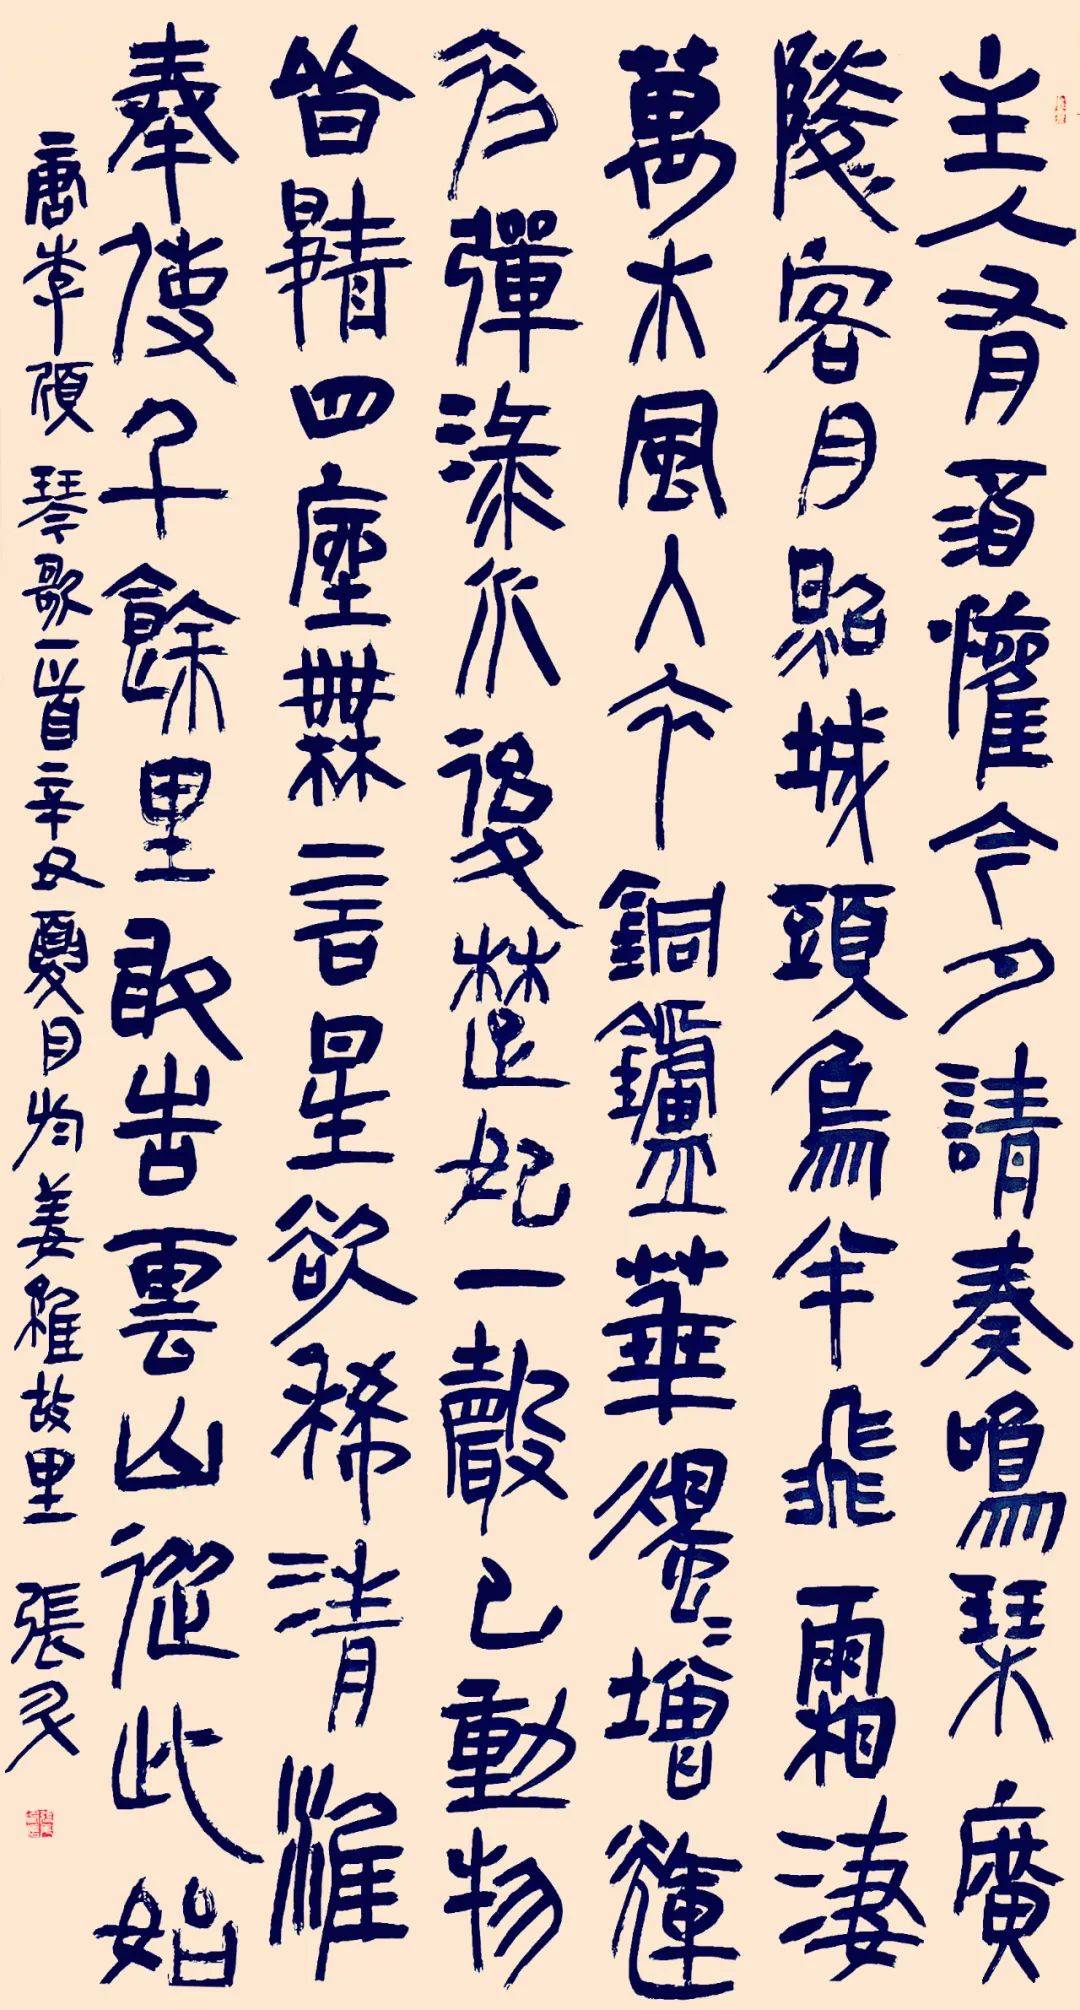 主人有酒懽今夕請奏鳴琴廣
陵客月照城頭烏半飛霜淒
萬木風入衣銅鑪華燭々增輝
初彈淥水後楚妃一聲已動物
皆靜四座無言星欲稀清淮
奉使千餘里敢告雲山從此始
唐李頎琴歌一首辛丑夏月於姜維故里 張